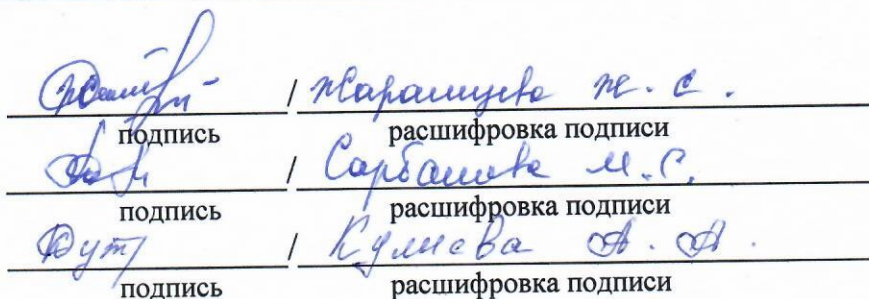 / Жарамцева Ж. С.
подпись расшифровка подписи
/ Сарбанова М.С.
подпись расшифровка подписи
/ А. А.
подпись расшифровка подписи